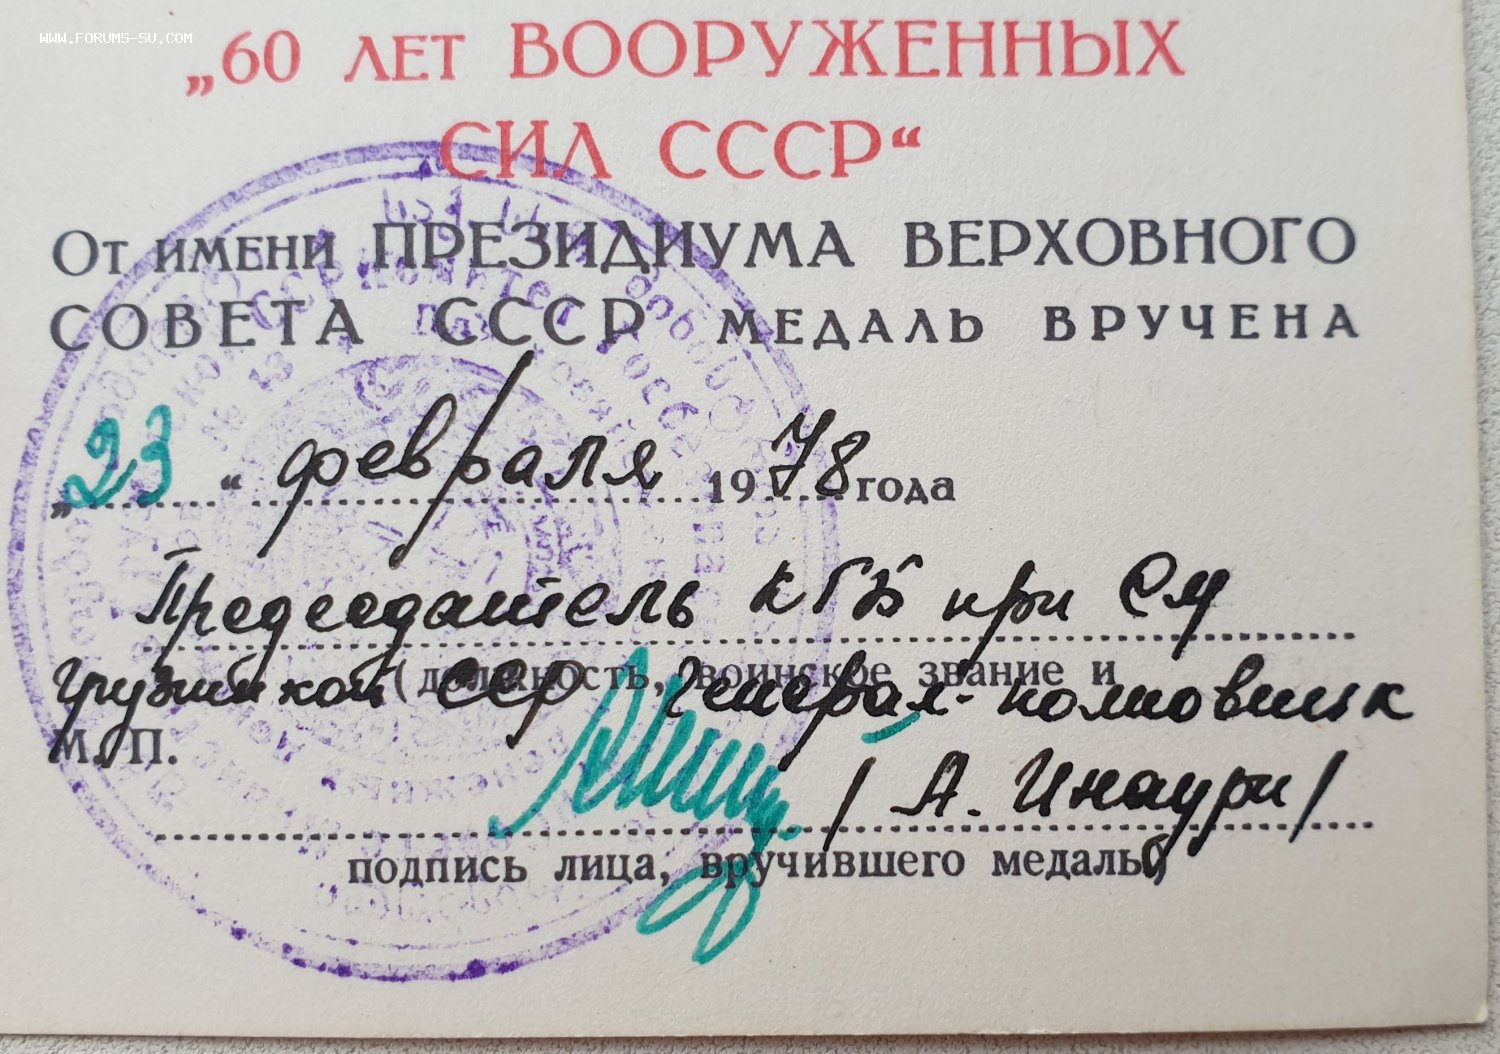 WWW.FORUMS-SU.COM
„60 ЛЕТ ВООРУЖЕННЫХ
СИЛ СССР“
ОТ ИМЕНИ ПРЕЗИДИУМА ВЕРХОВНОГО
СОВЕТА СССР МЕДАЛЬ ВРУЧЕНА
„23“ февраля 1978 года
Председатель КГБ при СМ
(должность, воинское звание и
Грузинской ССР Генерал-полковник
М. П.
/А. Инаури/
подпись лица, вручившего медаль)